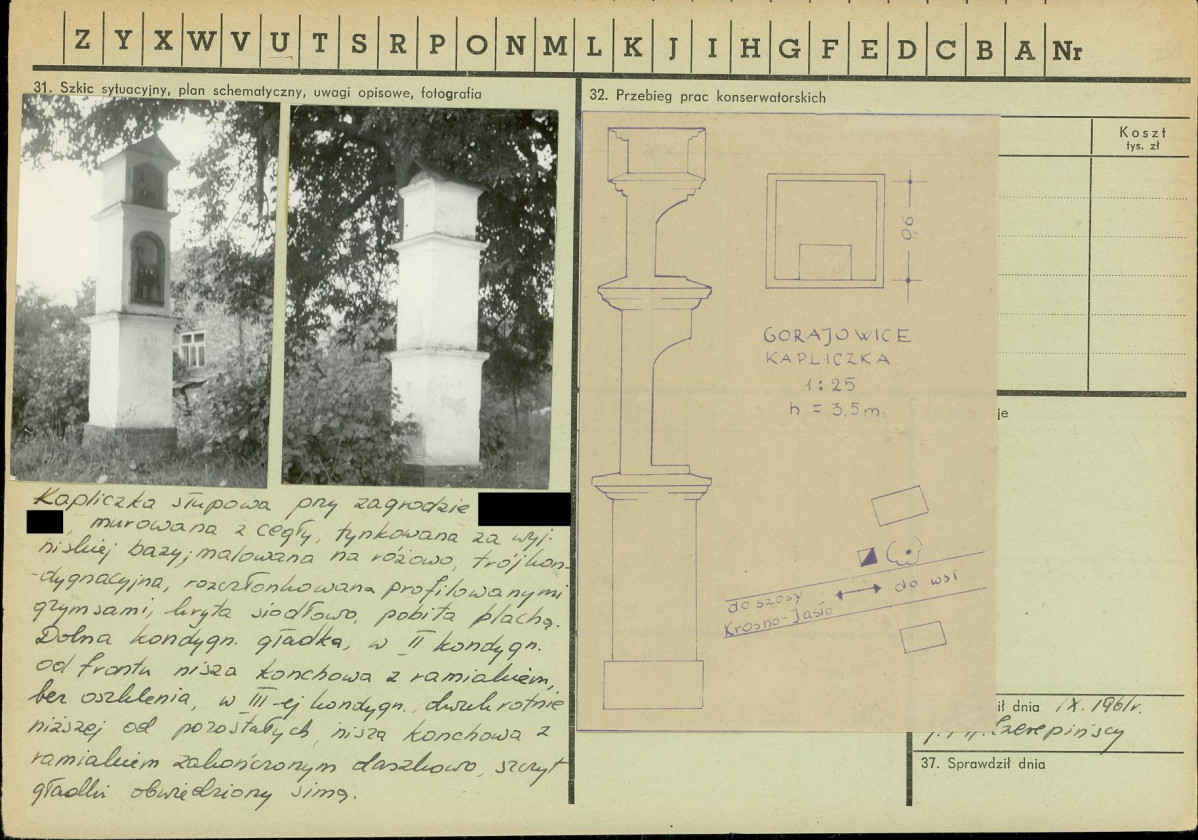 Z Y X W V U T S R P O N M L K J I H G F E D C B A Nr
31. Szkic sytuacyjny, plan schematyczny, uwagi opisowe, fotografia
Kapliczka słupowa przy zagrodzie
, murowana z cegły, tynkowana za wyj.
niskiej bazy; malowana na różowo, trójkon-
-dygnacyjna, rozczłonkowana profilowanymi
gzymsami, kryta siodłowo, pobita blachą.
Dolna kondygn. gładka, w II kondygn.
od frontu nisza konchowa z ramiakiem,
bez oszklenia, w III-ej kondygn. dwukrotnie
niższej od pozostałych, nisza konchowa z
ramiakiem zakończonym daszkowo, szczyt
gładki obwiedziony simą.
32. Przebieg prac konserwatorskich
Koszt
tys. zł
0,6
GORAJOWICE
KAPLICZKA
1:25
h = 3,5 m.
do szosy
Krosno-Jasło
do wsi
je
ił dnia IX. 1961r.
Czerepińscy
37. Sprawdził dnia